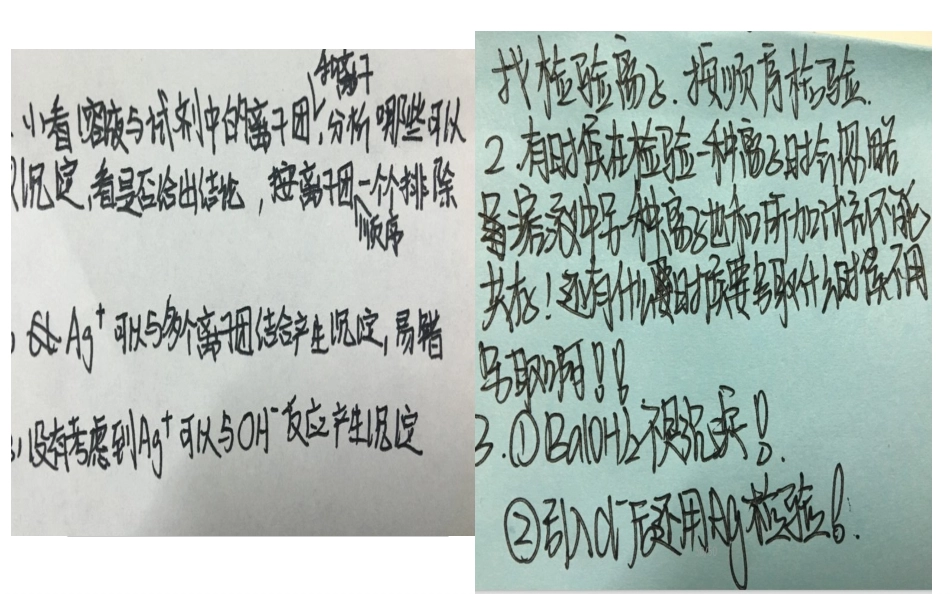 和离子
1. 看溶液与试剂中的离子团，分析哪些可以
沉淀，看是否给出结论，按离子团一个个排除
顺序
Ag⁺可以与多个离子团结合产生沉淀，易错
3、没有考虑到Ag⁺可以与OH⁻反应产生沉淀
找检验离子．按顺序检验．
2．有时候在检验一种离子时会忽略
溶液中另一种离子也和所加试剂不能
共存！还有什么时候要另取什么时候不用
另取啊！！
3．①Ba(OH)2不是沉淀！
②引入Cl⁻后还用Ag检验！